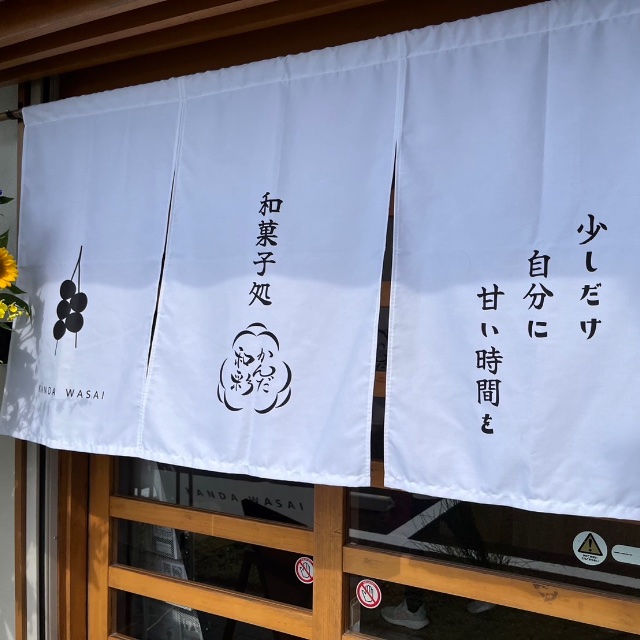 少しだけ
自分に
甘い時間を
和菓子処
かんだ
和彩
KANDA WASAI
KANDA WASAI